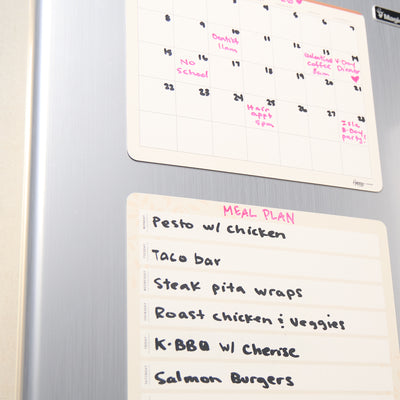 8 9 10 11 12 13 14
Dentist
11am
Valentine
coffee
8am
V-Day
Dinner
15 16 17 18 19 20 21
No
school
22 23 24 25 26 27 28
Hair
appt
5pm
Isla
B-Day
party!
MEAL PLAN
MONDAY Pesto w/ chicken
TUESDAY Taco bar
WEDNESDAY Steak pita wraps
THURSDAY Roast chicken & veggies
FRIDAY K-BBQ w/ Cherise
SATURDAY Salmon Burgers